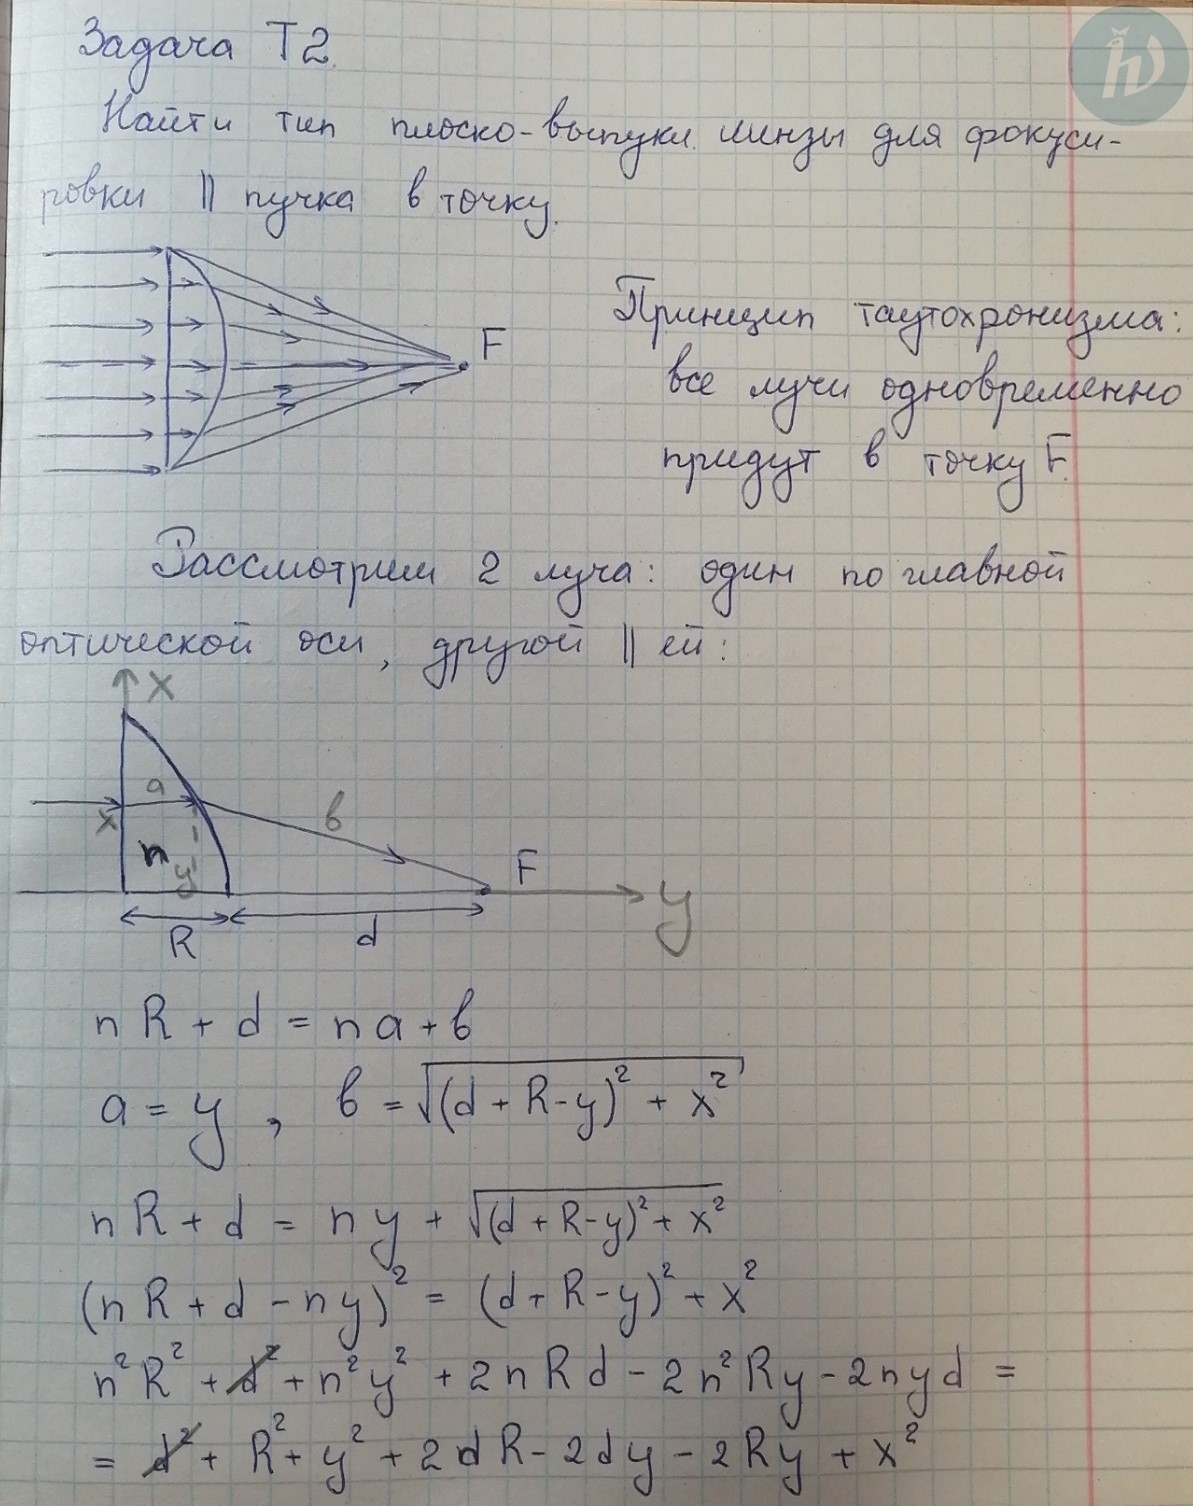 Задача T2.
Найти тип плоско-выпукл. линзы для фокуси-
ровки || пучка в точку.
F
Принцип таутохронизма:
все лучи одновременно
придут в точку F.
Рассмотрим 2 луча: один по главной
оптической оси, другой || ей:
x
a
x
в
n
y
F
y
R
d
nR + d = na + в
a = y , в = √((d + R - y)² + x²)
nR + d = ny + √((d + R - y)² + x²)
(nR + d - ny)² = (d + R - y)² + x²
n²R² + d² + n²y² + 2nRd - 2n²Ry - 2nyd =
= d² + R² + y² + 2dR - 2dy - 2Ry + x²